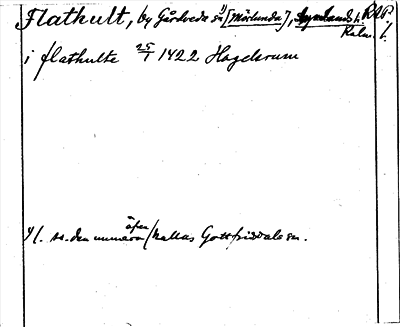 Flathult, by Gårdveda sn [Mörlunda], Aspelands h. RAP.
Kalm. l.
i flathulte 25/1 1422 Hagelsrum
1/ l. so. den numera äfven kallas Gottfridsdale sn.